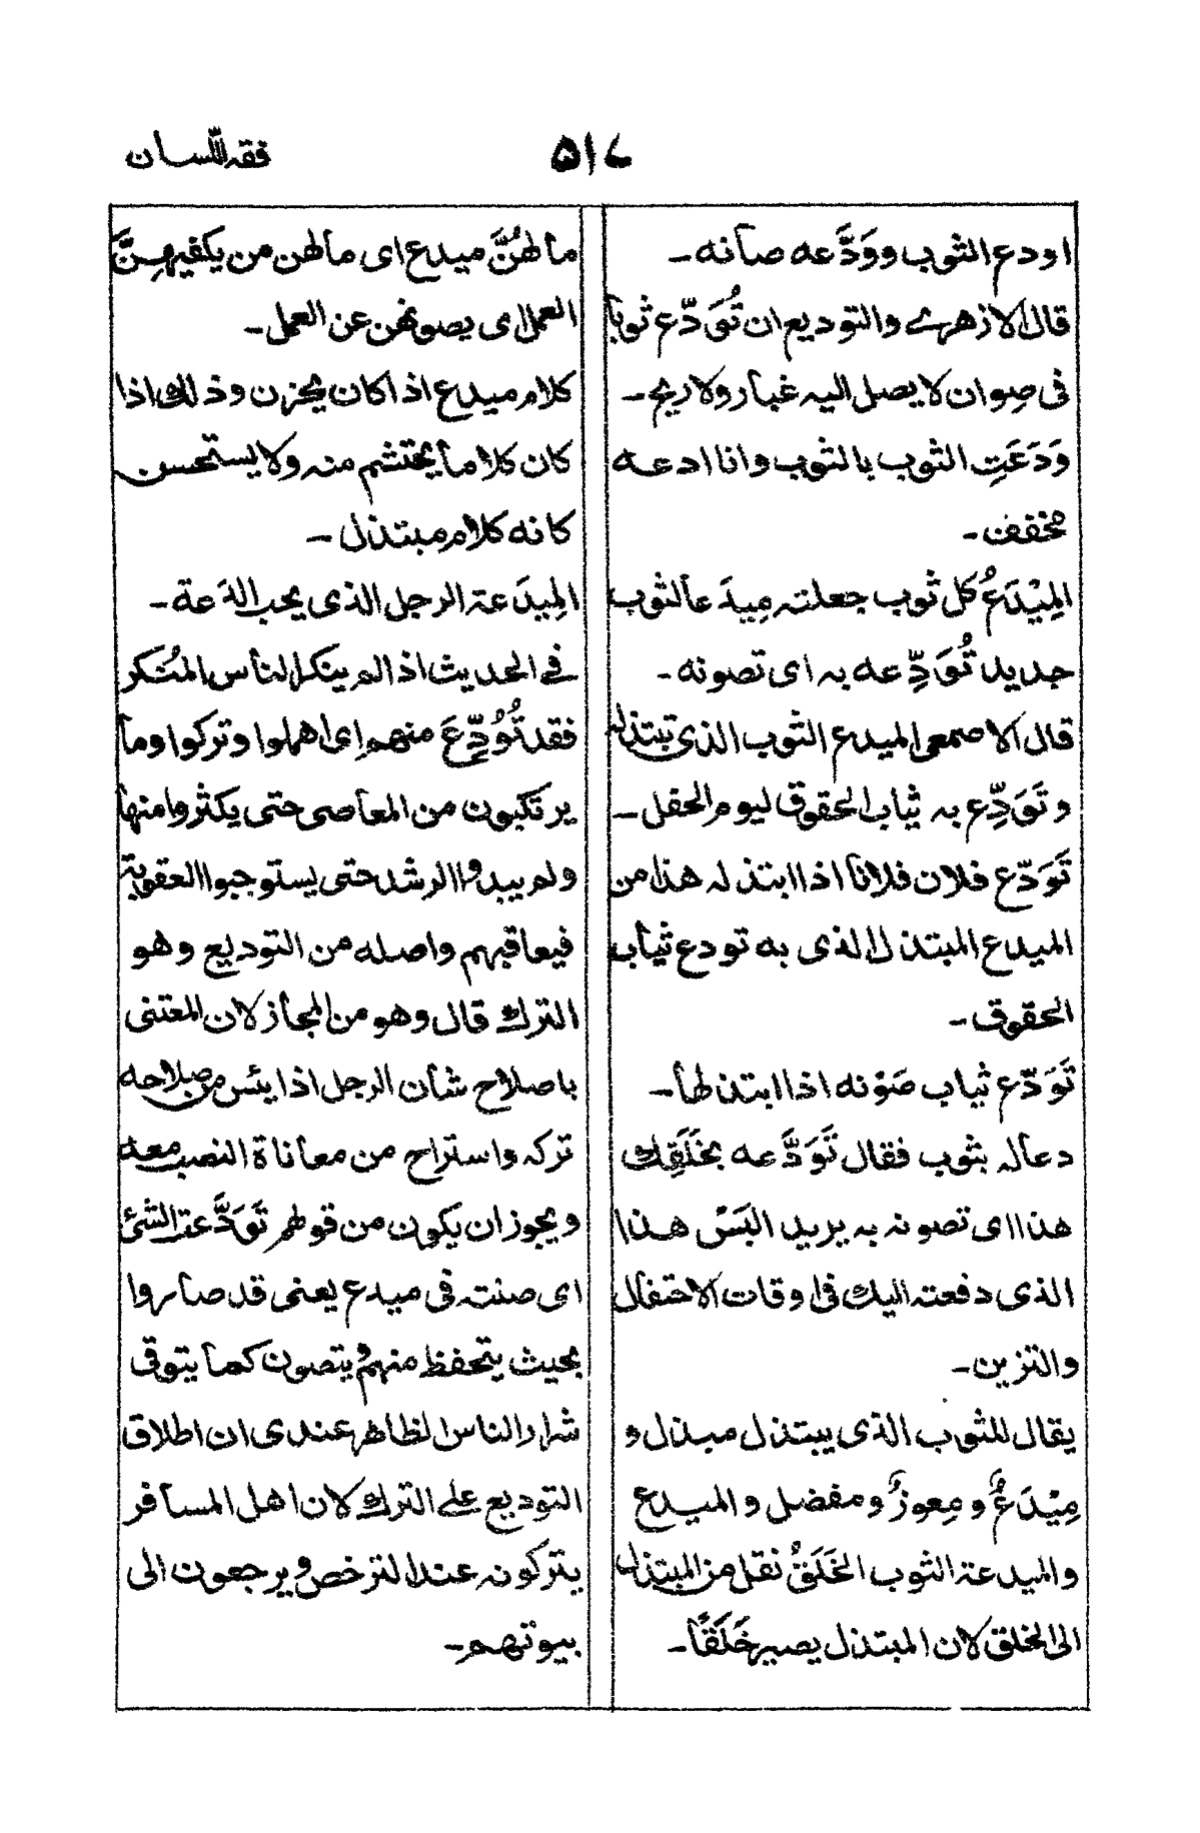 فقه اللسان
۵۱۷
اودع الثوب ووَدَّعه صانه۔
قال الازهرے والتوديع ان تُوَدّع ثوبا
فی صِوان لا يصل اليہ غبار ولا ريح۔
وَدَعَتِ الثوب بالثوب وانا ادعه
مخفف۔
المِيْدَعُ كل ثوب جعلتہ مِيدَعا لثوب
جديد تُوَدِّعه بہ ای تصونه۔
قال الاصمعی الميدع الثوب الذی تبتذله
و تَوَدِّع بہ ثياب الحقوق ليوم الحفل۔
تَوَدّع فلان فلانا اذا ابتذلہ هذا من
الميدع المبتذل الذی به تودع ثياب
الحقوق۔
تَوَدّع ثياب صَوْنه اذا ابتذلها۔
دعا له بثوب فقال تَوَدَّعه بخَلَقِك
هذا ای تصونہ بہ يريد البَسْ هذا
الذی دفعته اليك فی اوقات الاحتفال
والتزين۔
يقال للثوب الذی يبتذل مبذل و
مِيْدَعٌ و مِعوزٌ و مفضل و الميدع
والميدعة الثوب الخَلَقُ نقل من المبتذل
الی الخلق لان المبتذل يصير خَلَقًا۔
ما لهُنَّ ميدع ای ما لهن من يكفيهِنَّ
العمل ای يصونهن عن العمل۔
كلام ميدع اذا كان يحزن وذلك اذا
كان كلاما يحتشم منہ ولا يستحسن
كانه كلام مبتذل۔
المِيدَعة الرجل الذی يحب الدَعة۔
فے الحديث اذا لم ينكر الناس المُنكر
فقد تُوُدِّعَ منهم ای اهملوا وتركوا وما
يرتكبون من المعاصی حتی يكثروا منها
ولم يبدوا الرشد حتی يستوجبوا العقوبة
فيعاقبهم واصله من التوديع وهو
الترك قال وهو من المجاز لان المعتنی
باصلاح شأن الرجل اذا يئس من صلاحه
تركہ واستراح من معاناة النصب معه
ويجوز ان يكون من قولهم تَوَدَّعت الشئ
ای صنتہ فی ميدع يعنی قد صاروا
بحيث يتحفظ منهم ويتصون كما يتوقی
شرار الناس الظاهر عندی ان اطلاق
التوديع علے الترك لان اهل المسافر
يتركونہ عند الترخص ويرجعون الی
بيوتهم۔